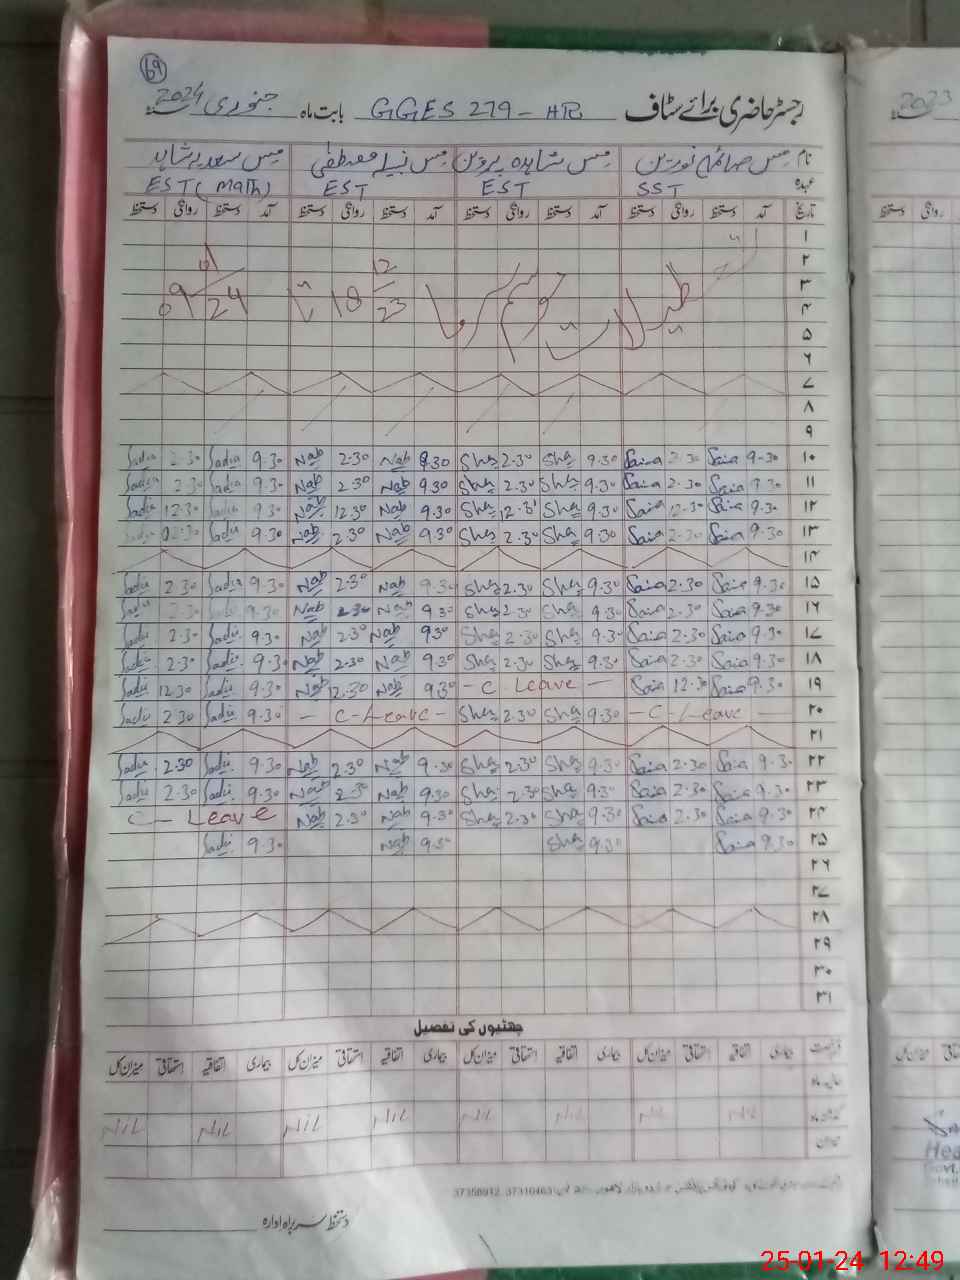 69
رجسٹر حاضری برائے سٹاف GGES 279 - HR بابت ماہ جنوری 2024
2023
نام مس صائمہ نورین مس شاہدہ پروین مس نبیلہ مصطفیٰ مس سعدیہ شاہد
عہدہ SST EST EST EST (Math)
تاریخ آمد دستخط روانگی دستخط آمد دستخط روانگی دستخط آمد دستخط روانگی دستخط آمد دستخط روانگی دستخط
روانگی دستخط
۱
۲
۳
تعطیلات موسم سرما 18 12/23 تا 09 01/24
۴
۵
۶
۷
۸
۹
۱۰ 9.30 Saima 2.30 Saima 9.30 Sha 2.30 Sha 9.30 Nab 2.30 Nab 9.30 Sadia 2.30 Sadia
۱۱ 9.30 Saima 2.30 Saima 9.30 Sha 2.30 Sha 9.30 Nab 2.30 Nab 9.30 Sadia 2.30 Sadia
۱۲ 9.30 Saima 12.30 Saima 9.30 Sha 12.30 Sha 9.30 Nab 12.30 Nab 9.30 Sadia 12.30 Sadia
۱۳ 9.30 Saima 2.30 Saima 9.30 Sha 2.30 Sha 9.30 Nab 2.30 Nab 9.30 Sadia 02.30 Sadia
۱۴
۱۵ 9.30 Saima 2.30 Saima 9.30 Sha 2.30 Sha 9.30 Nab 2.30 Nab 9.30 Sadia 2.30 Sadia
۱۶ 9.30 Saima 2.30 Saima 9.30 Sha 2.30 Sha 9.30 Nab 2.30 Nab 9.30 Sadia 2.30 Sadia
۱۷ 9.30 Saima 2.30 Saima 9.30 Sha 2.30 Sha 9.30 Nab 2.30 Nab 9.30 Sadia 2.30 Sadia
۱۸ 9.30 Saima 2.30 Saima 9.30 Sha 2.30 Sha 9.30 Nab 2.30 Nab 9.30 Sadia 2.30 Sadia
۱۹ 9.30 Saima 12.30 Saima - C Leave - 9.30 Nab 12.30 Nab 9.30 Sadia 12.30 Sadia
۲۰ - C-Leave - 9.30 Sha 2.30 Sha - C-Leave - 9.30 Sadia 2.30 Sadia
۲۱
۲۲ 9.30 Saima 2.30 Saima 9.30 Sha 2.30 Sha 9.30 Nab 2.30 Nab 9.30 Sadia 2.30 Sadia
۲۳ 9.30 Saima 2.30 Saima 9.30 Sha 2.30 Sha 9.30 Nab 2.30 Nab 9.30 Sadia 2.30 Sadia
۲۴ 9.30 Saima 2.30 Saima 9.30 Sha 2.30 Sha 9.30 Nab 2.30 Nab C - Leave
۲۵ 9.30 Saima 9.30 Sha 9.30 Nab 9.30 Sadia
۲۶
۲۷
۲۸
۲۹
۳۰
۳۱
چھٹیوں کی تفصیل
بیماری اتفاقیہ استحقاقی میزان کل بیماری اتفاقیہ استحقاقی میزان کل بیماری اتفاقیہ استحقاقی میزان کل بیماری اتفاقیہ استحقاقی میزان کل
حالیہ ماہ
گذشتہ ماہ Nil Nil Nil Nil Nil Nil Nil Nil
میزان
37310463, 37358912
دستخط سربراہ ادارہ
Hea
Govt.
25-01-24 12:49